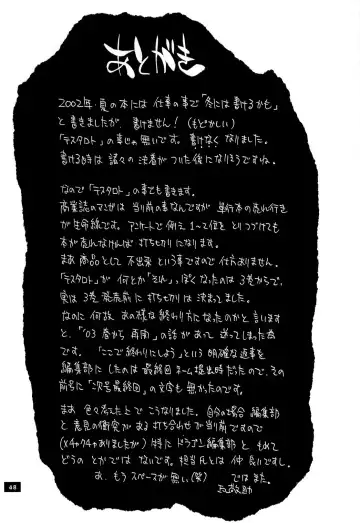 あとがき
2002年・夏の本には 仕事の事で「冬には書けるかも」
と書きましたが、書けません！(もどかしい)
「テスタロト」の事じゃ無いです。書けなくなりました。
書ける時は 諸々の決着がついた後になりそうですね。
なので「テスタロト」の事でも書きます。
商業誌のマンガは 当り前の事なんですが 単行本の売れ行き
が生命線です。アンケートで例え 1〜2位を とりつづけても
本が売れなければ 打ち切りになります。
まあ 商品として 不出来 という事ですので 仕方ありません。
「テスタロト」が 何とか「さん」っぽくなったのは 3巻からで、
実は 3巻 発売前に 打ち切りは 決まってました。
なのに何故 あの様な終わり方になったのかと言いますと
「'03 春から 再開」の話があって 迷ってしまった為
です。「ここで終わりにしよう」という明確な返事を
編集部にしたのは 最終回 ネーム提出時だったので、その
前号に「次号最終回」の文字も 無かったのです。
まあ 色々あったとで こうなりました。自分の場合 編集部
と意見の衝突が ある 打ち合わせが当り前ですので
(メチャクチャありましたが) 特に ドラゴン編集部と もめて
どうの とかでは ないです。担当氏とは 仲良いですし。
お、もう スペースが無い(笑) ではまた。
48